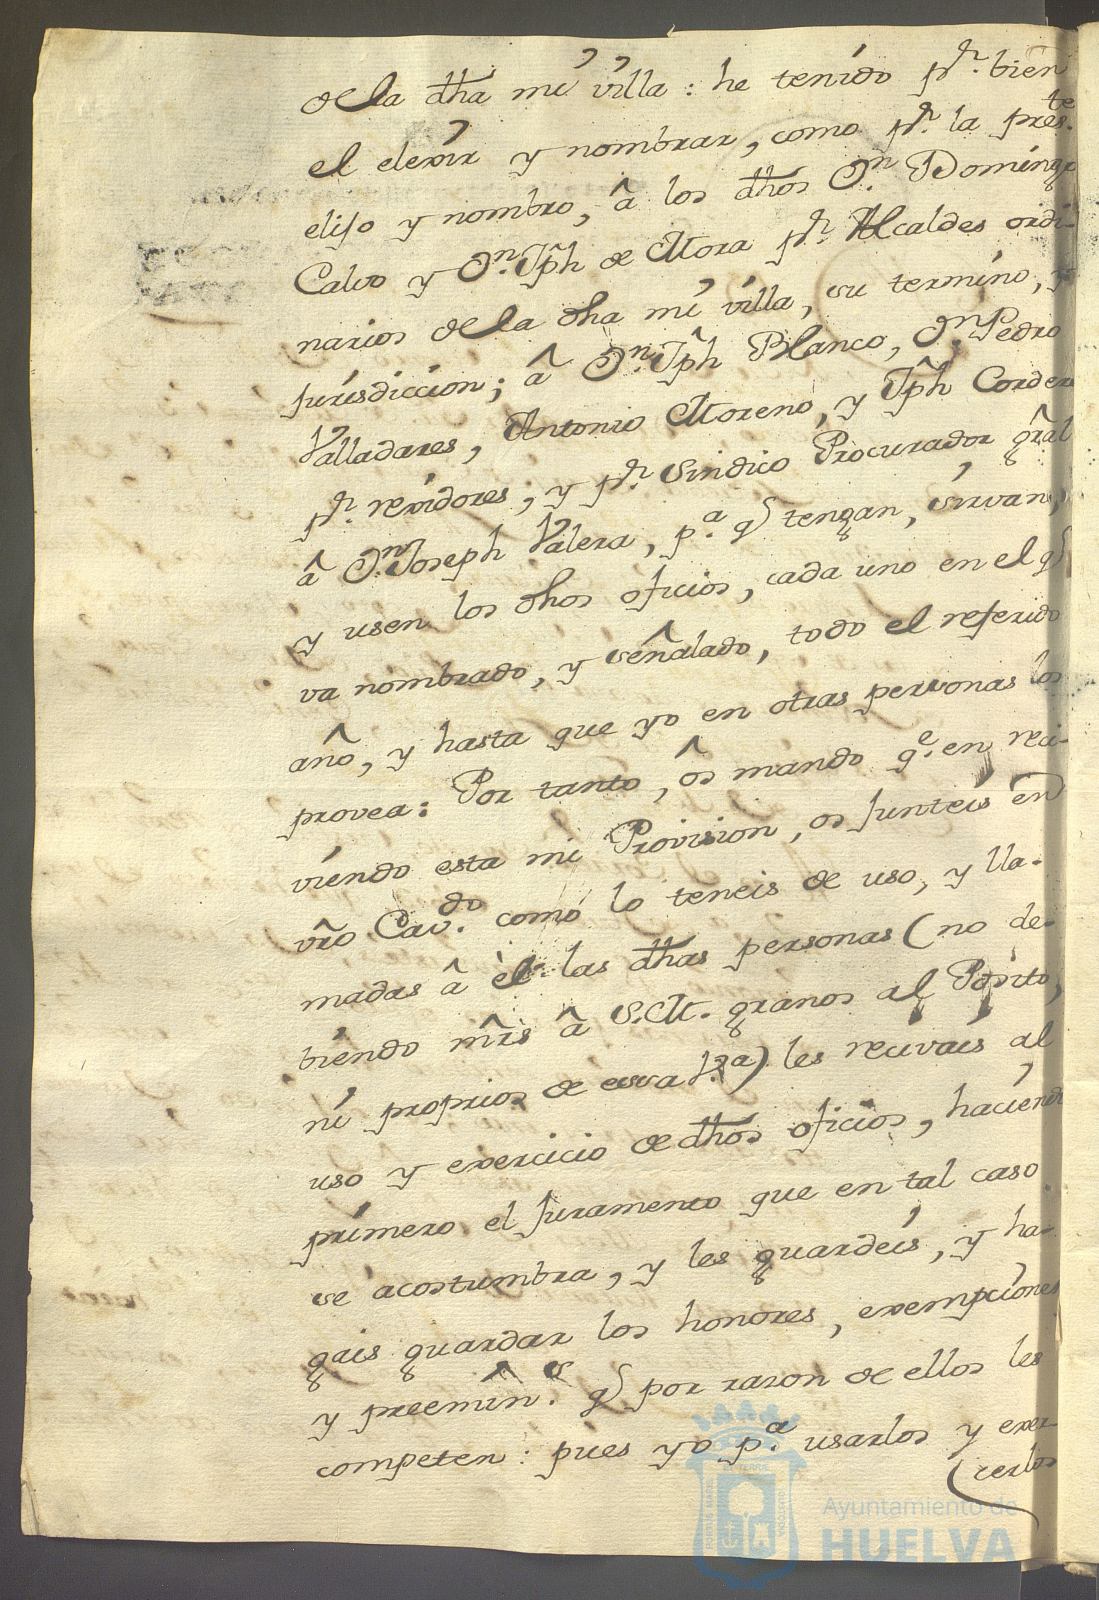 de la dha mi villa: he tenido pr. bien
el elexir y nombrar, como pr. la preste.
elijo y nombro, â los dhos Dn. Domingo
Calvo y Dn. Jph de Mora pr. Alcaldes ordi-
narios de la dha mi villa, su termino, y
jurisdiccion; â Dn. Jph Blanco, Dn. Pedro
Valladares, Antonio Moreno, y Jph Cordero
pr. rexidores; y pr. Sindico Procurador gral
â Dn. Joseph Valera, pa. q tengan, sirvan,
y usen los dhos oficios, cada uno en el q
va nombrado, y señalado, todo el referido
año, y hasta que yo en otras personas los
provea: Por tanto, ôs mando qe. en reci-
viendo esta mi Provision, os junteis en
vro Cavdo. como lo teneis de uso, y lla-
madas â èl las dhas personas (no de-
biendo mrs â S.M. granos al Posito,
ni proprios de essa Va) les recivais al
uso y exercicio de dhos oficios, haciendo
primero el juramento que en tal caso
se acostumbra, y les guardeis, y ha-
gais guardar los honores, exempciones
y preemins. q por razon de ellos les
competen: pues yo pa. usarlos y exer-
(cerlos
Ayuntamiento de
HUELVA